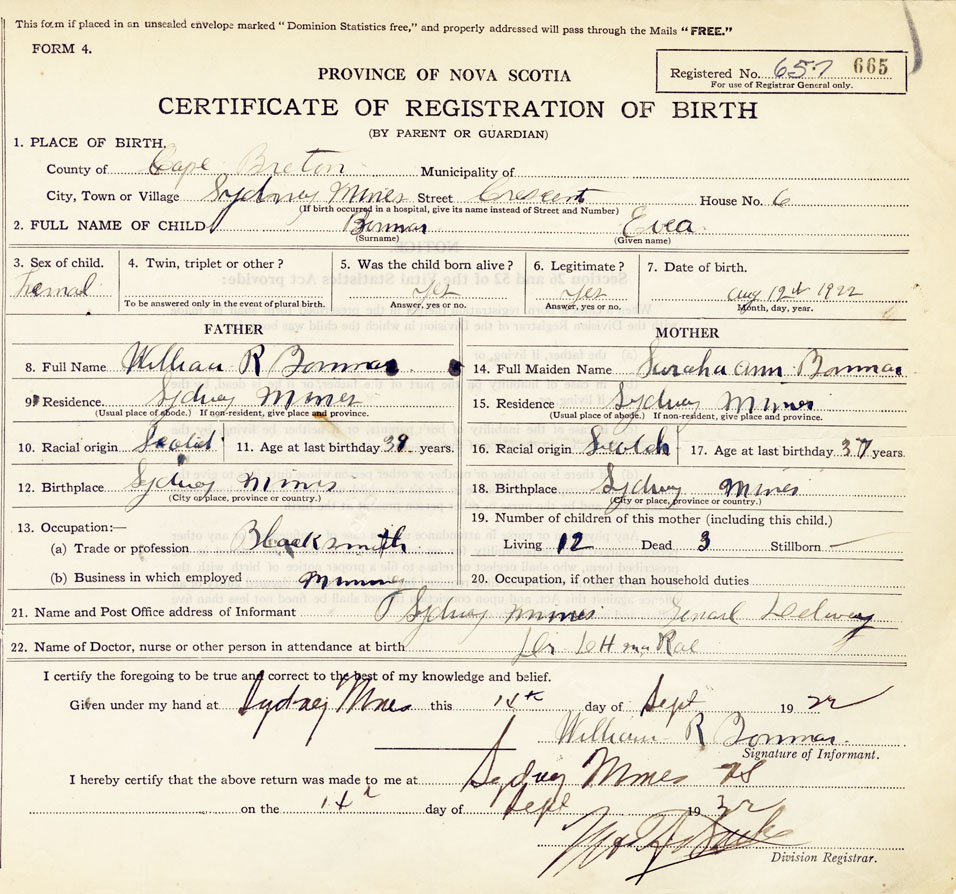 This form if placed in an unsealed envelope marked "Dominion Statistics free," and properly addressed will pass through the Mails "FREE."
FORM 4.
Registered No. 657 665
For use of Registrar General only.
PROVINCE OF NOVA SCOTIA
CERTIFICATE OF REGISTRATION OF BIRTH
(BY PARENT OR GUARDIAN)
1. PLACE OF BIRTH.
County of Cape Breton Municipality of
City, Town or Village Sydney Mines Street Crescent House No. 6
(If birth occurred in a hospital, give its name instead of Street and Number)
2. FULL NAME OF CHILD
(Surname) (Given name)
3. Sex of child. 4. Twin, triplet or other? 5. Was the child born alive? 6. Legitimate? 7. Date of birth.
Femal Yes Yes Aug 12th 1922
To be answered only in the event of plural birth. Answer, yes or no. Answer, yes or no. Month, day, year.
FATHER MOTHER
8. Full Name William R 14. Full Maiden Name Sarah ann
9. Residence Sydney Mines 15. Residence Sydney Mines
(Usual place of abode.) If non-resident, give place and province. (Usual place of abode.) If non-resident, give place and province.
10. Racial origin Scotch 11. Age at last birthday 39 years. 16. Racial origin Scotch 17. Age at last birthday 37 years.
12. Birthplace Sydney Mines 18. Birthplace Sydney Mines
(City or place, province or country.) (City or place, province or country.)
13. Occupation:— 19. Number of children of this mother (including this child.)
(a) Trade or profession Blacksmith Living 12 Dead 3 Stillborn —
(b) Business in which employed Mining 20. Occupation, if other than household duties
21. Name and Post Office address of Informant Sydney Mines
22. Name of Doctor, nurse or other person in attendance at birth Dr
I certify the foregoing to be true and correct to the best of my knowledge and belief.
Given under my hand at Sydney Mines this 14th day of Sept 1922
William R
Signature of Informant.
I hereby certify that the above return was made to me at Sydney Mines NS
on the 14th day of Sept 19
Division Registrar.